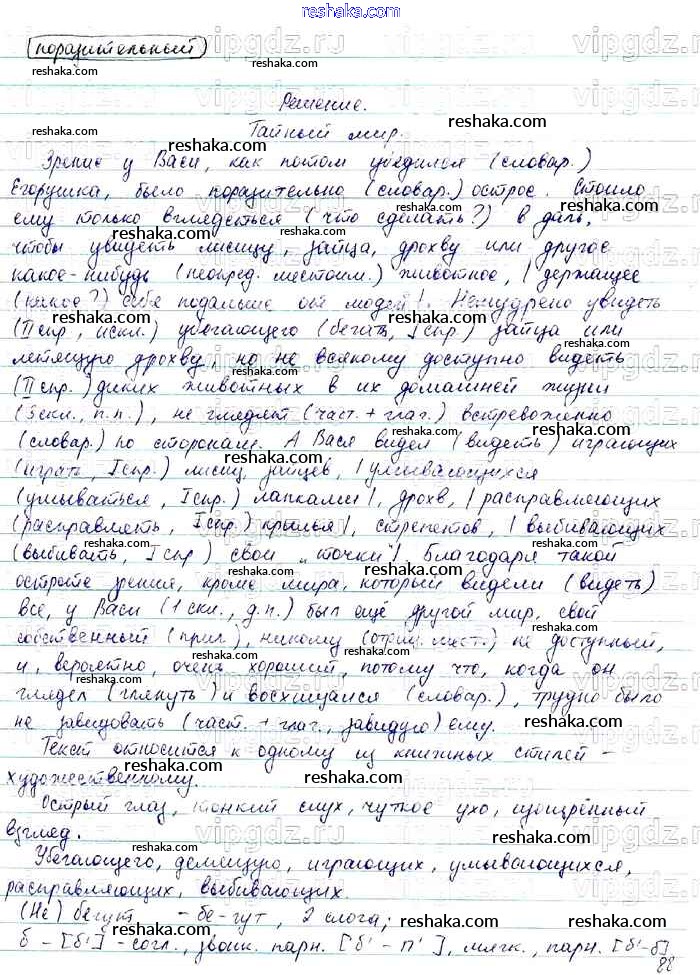 reshaka.com
поразительный
Решение.
Тайный мир.
Зрение у Васи, как потом убедился (словар.)
Егорушка, было поразительно (словар.) острое. Стоило
ему только вглядеться (что сделать?) в даль,
чтобы увидеть лисицу, зайца, дрохву или другое
какое-нибудь (неопред. местоим.) животное, | держащее
(какое?) себя подальше от людей |. Немудрено увидеть
(II спр., искл.) убегающего (бегать, I спр.) зайца или
летящую дрохву, но не всякому доступно видеть
(II спр.) диких животных в их домашней жизни
(3 скл., п.п.), не глядят (част. + глаг.) встревоженно
(словар.) по сторонам. А Вася видел (видеть) играющих
(играть, I спр.) лисиц, зайцев, | умывающихся
(умываться, I спр.) лапками |, дрохв, | расправляющих
(расправлять, I спр.) крылья |, стрепетов, | выбивающих
(выбивать, I спр) свои „точки" |. Благодаря такой
остроте зрения, кроме мира, который видели (видеть)
все, у Васи (1 скл., д.п.) был ещё другой мир, свой
собственный (прил), никому (отриц. мест.) не доступный,
и, вероятно, очень хороший, потому что, когда он
глядел (глянуть) и восхищался (словар.), трудно было
не завидовать (част. + глаг., завидую) ему.
Текст относится к одному из книжных стилей –
художественному.
Острый глаз, тонкий слух, чуткое ухо, изощрённый
взгляд.
Убегающего, летящую, играющих, умывающихся,
расправляющих, выбивающих.
(Не) бегут – бе-гут, 2 слога;
б – [б'] – согл., звонк. парн. [б' – п'], мягк., парн. [б' – б],
88